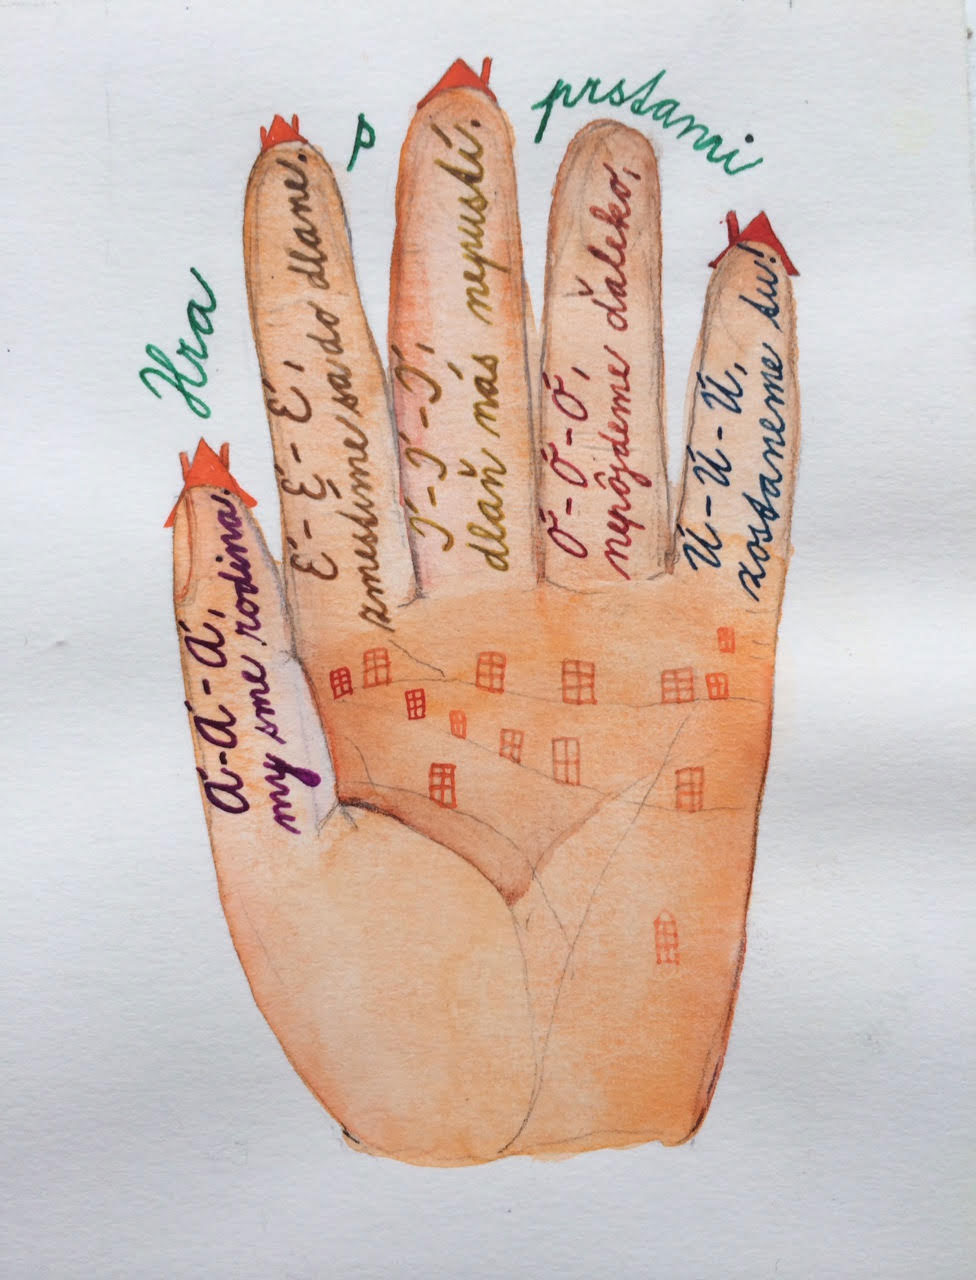 Hra s prstami
Á-Á-Á,
my sme rodina.
É-É-É,
zmestíme sa do dlane.
Í-Í-Í,
dlaň nás nepustí.
Ó-Ó-Ó,
nepôjdeme ďaleko,
Ú-Ú-Ú,
zostaneme tu!